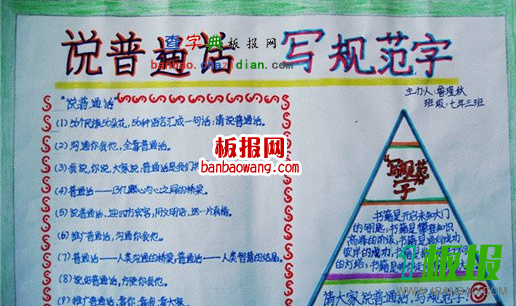 说普通话 写规范字
查字典板报网
banbao.chazidian.com
主办人:曾瑾秋
班级:七年三班
"说普通话"
(1)56个民族56朵花,56种语言汇成一句话:请说普通话。
(2)沟通你我他,全靠普通话。
(3)我说,你说,大家说,普通话是我们
(4)普通话——13亿颗心与心之间的桥梁。
(5)说普通话,迎四方宾客,用文明语,送一片真情。
(6)推广普通话,沟通你我他。
(7)普通话——人类沟通的桥梁,普通话——人类智慧的结晶。
(8)说好普通话,方便你我他。
(9)推广普通话,靠你,靠我,靠大家。
板报网
banbaowang.com
"写规范字"
书籍是开启未知大门
的钥匙;书籍是攀登知识
高峰的阶梯;书籍是通向成功
的灯塔;书籍
请大家说普通话,写规范字!
板报